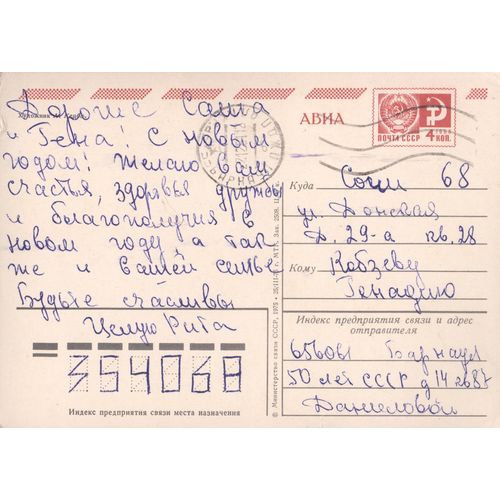 Художник
Дорогие Саша
и Гена! С новым
годом! Желаю вам
счастья, здоровья дружбы
и благополучия в
новом году, а так
же и вашей семье
Будьте счастливы
Целую Рита
354068
Индекс предприятия связи места назначения
© Министерство связи СССР, 1975
АВИА
ПОЧТА СССР 4 КОП.
Куда Сочи 68
ул. Донская
д. 29-а кв. 28
Кому Кобзеву
Генадию
Индекс предприятия связи и адрес
отправителя
656061 Барнаул
50 лет СССР д 14 кв 87
Даниловой